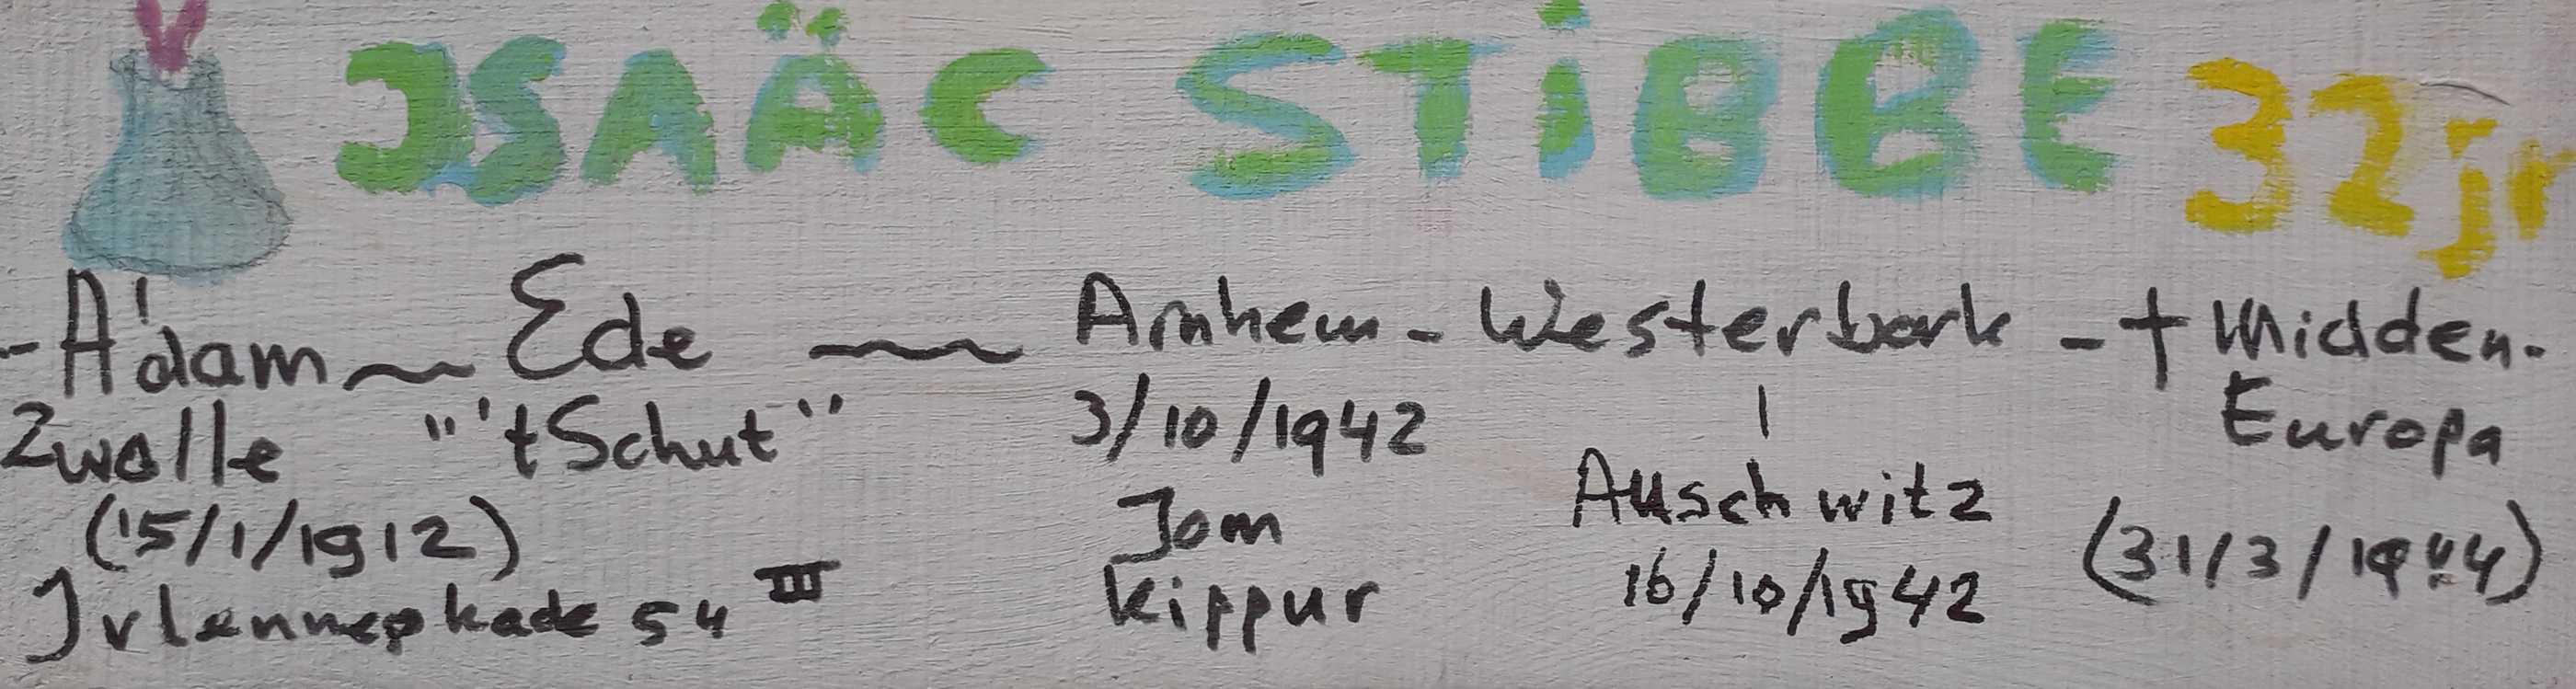 JSAÄC STiBBE 32jr
- A'dam ~ Ede ~ Arnhem - Westerbork - † Midden-
Zwolle "'t Schut" 3/10/1942 | Europa
(15/1/1912) Jom Auschwitz (31/3/1944)
Jvlennepkade 54 III Kippur 16/10/1942